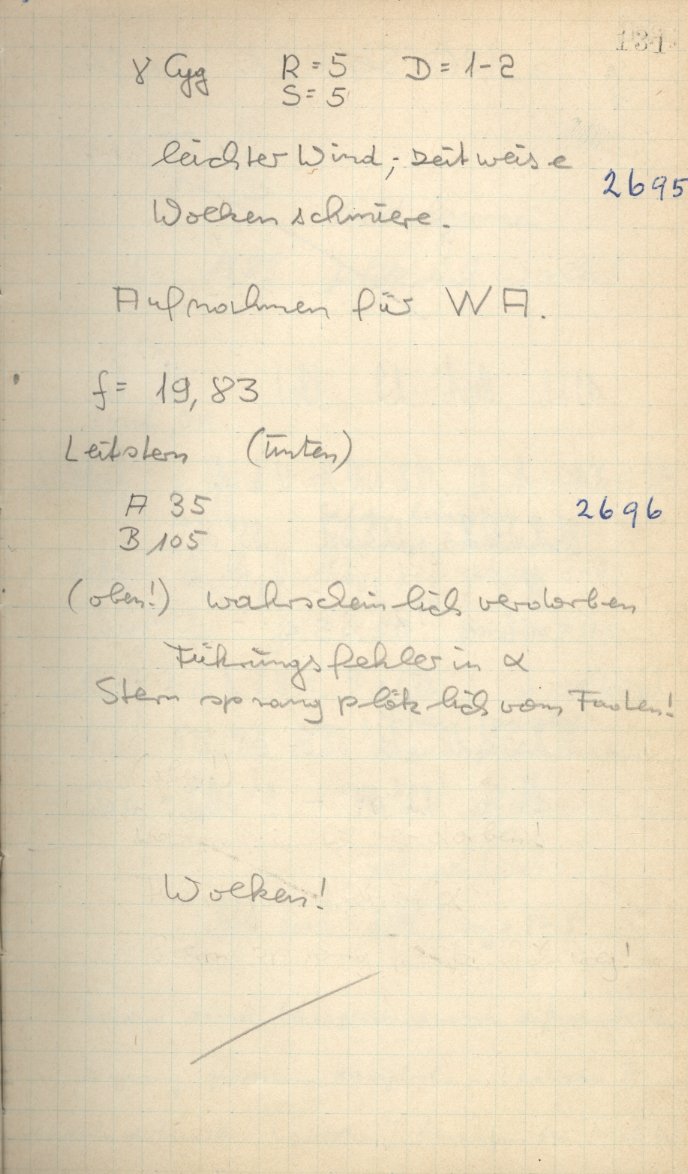 131
γ Cyg R = 5 D = 1-2
S = 5
leichter Wind, zeitweise
2695
Wolkenschmiere.
Aufnahmen für WA.
f = 19,83
Leitstern (unten)
A 35
2696
B 105
(oben!) wahrscheinlich verdorben
Führungsfehler in α
Stern sprang plötzlich vom Faden!
Wolken!